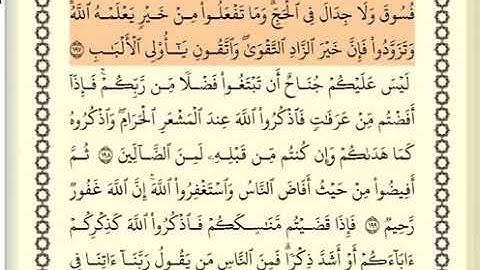 فُسُوقَ وَلَا جِدَالَ فِي ٱلْحَجِّ ۗ وَمَا تَفْعَلُوا۟ مِنْ خَيْرٍ يَعْلَمْهُ ٱللَّهُ ۗ
وَتَزَوَّدُوا۟ فَإِنَّ خَيْرَ ٱلزَّادِ ٱلتَّقْوَىٰ ۚ وَٱتَّقُونِ يَـٰٓأُو۟لِي ٱلْأَلْبَـٰبِ ١٩٧
لَيْسَ عَلَيْكُمْ جُنَاحٌ أَن تَبْتَغُوا۟ فَضْلًا مِّن رَّبِّكُمْ ۚ فَإِذَآ
أَفَضْتُم مِّنْ عَرَفَـٰتٍ فَٱذْكُرُوا۟ ٱللَّهَ عِندَ ٱلْمَشْعَرِ ٱلْحَرَامِ ۖ وَٱذْكُرُوهُ
كَمَا هَدَىٰكُمْ وَإِن كُنتُم مِّن قَبْلِهِۦ لَمِنَ ٱلضَّآلِّينَ ١٩٨ ثُمَّ
أَفِيضُوا۟ مِنْ حَيْثُ أَفَاضَ ٱلنَّاسُ وَٱسْتَغْفِرُوا۟ ٱللَّهَ ۚ إِنَّ ٱللَّهَ غَفُورٌ
رَّحِيمٌ ١٩٩ فَإِذَا قَضَيْتُم مَّنَـٰسِكَكُمْ فَٱذْكُرُوا۟ ٱللَّهَ كَذِكْرِكُمْ
ءَابَآءَكُمْ أَوْ أَشَدَّ ذِكْرًا ۗ فَمِنَ ٱلنَّاسِ مَن يَقُولُ رَبَّنَآ ءَاتِنَا فِي